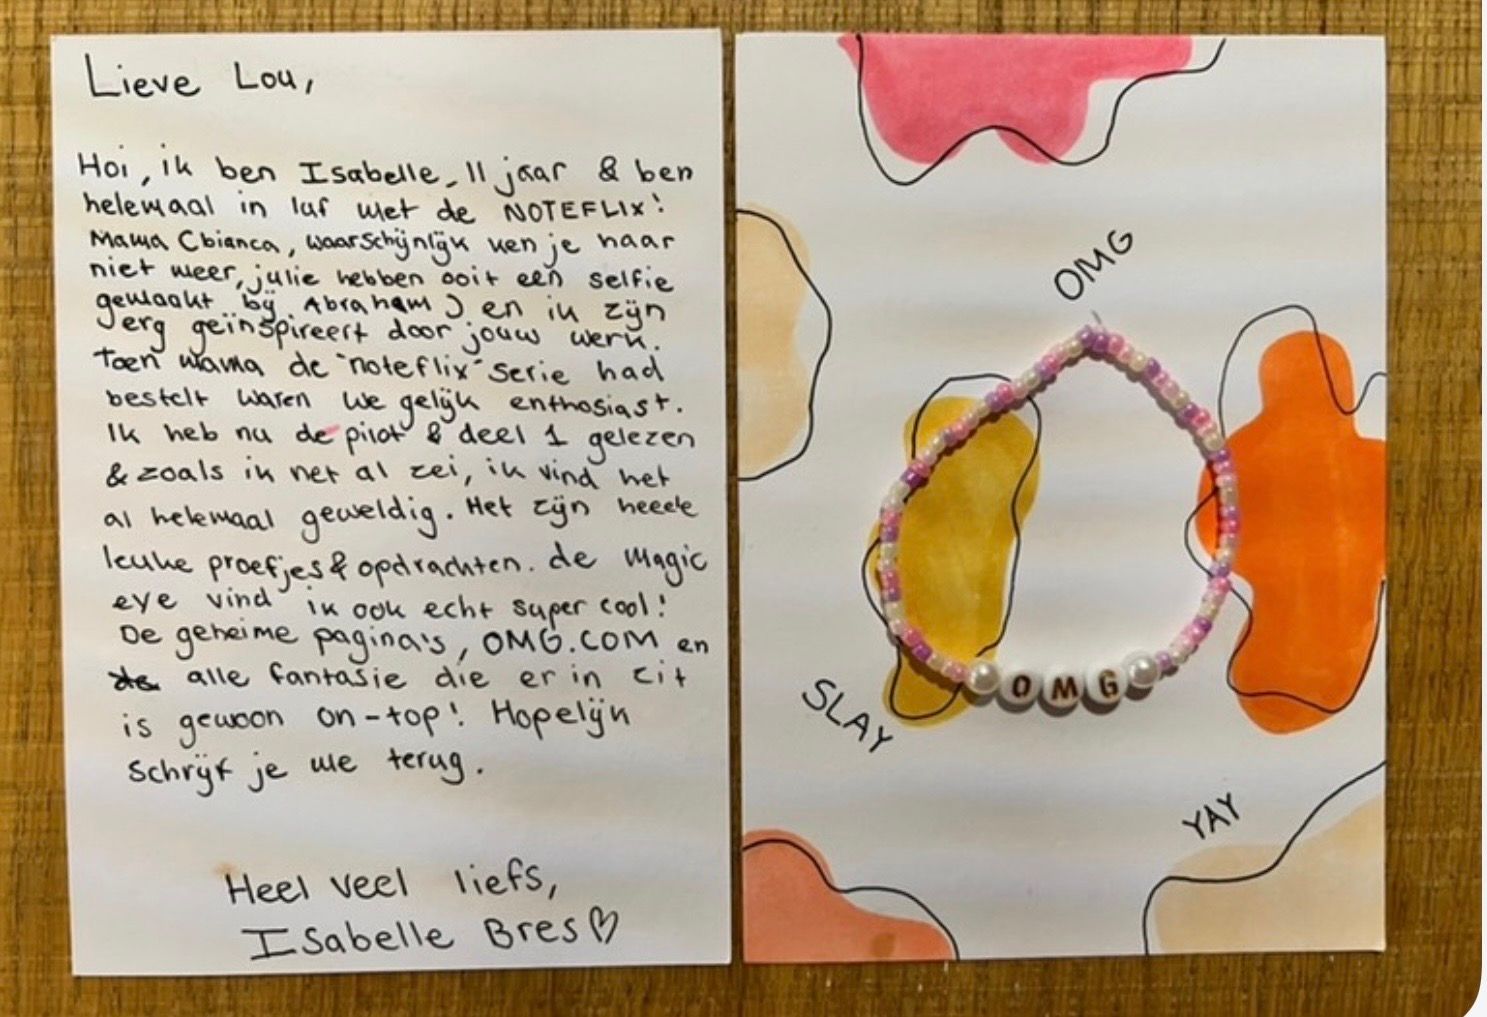 Lieve Lou,
Hoi, ik ben Isabelle, 11 jaar & ben
helemaal in luf met de NOTEFLIX!
Mama (bianca, waarschijnlijk ken je haar
niet meer, julie hebben ooit een selfie
gemaakt bij Abraham) en ik zijn
erg geïnspireert door jouw werk.
Toen mama de "noteflix" serie had
bestelt waren we gelijk enthosiast.
Ik heb nu de pilot & deel 1 gelezen
& zoals ik net al zei, ik vind het
al helemaal geweldig. Het zijn heeele
leuke proefjes & opdrachten. de magic
eye vind ik ook echt super cool!
De geheime pagina's, OMG.COM en
de alle fantasie die er in zit
is gewoon on-top! Hopelijk
schrijf je me terug.
Heel veel liefs,
Isabelle Bres♡
OMG
OMG
SLAY
YAY